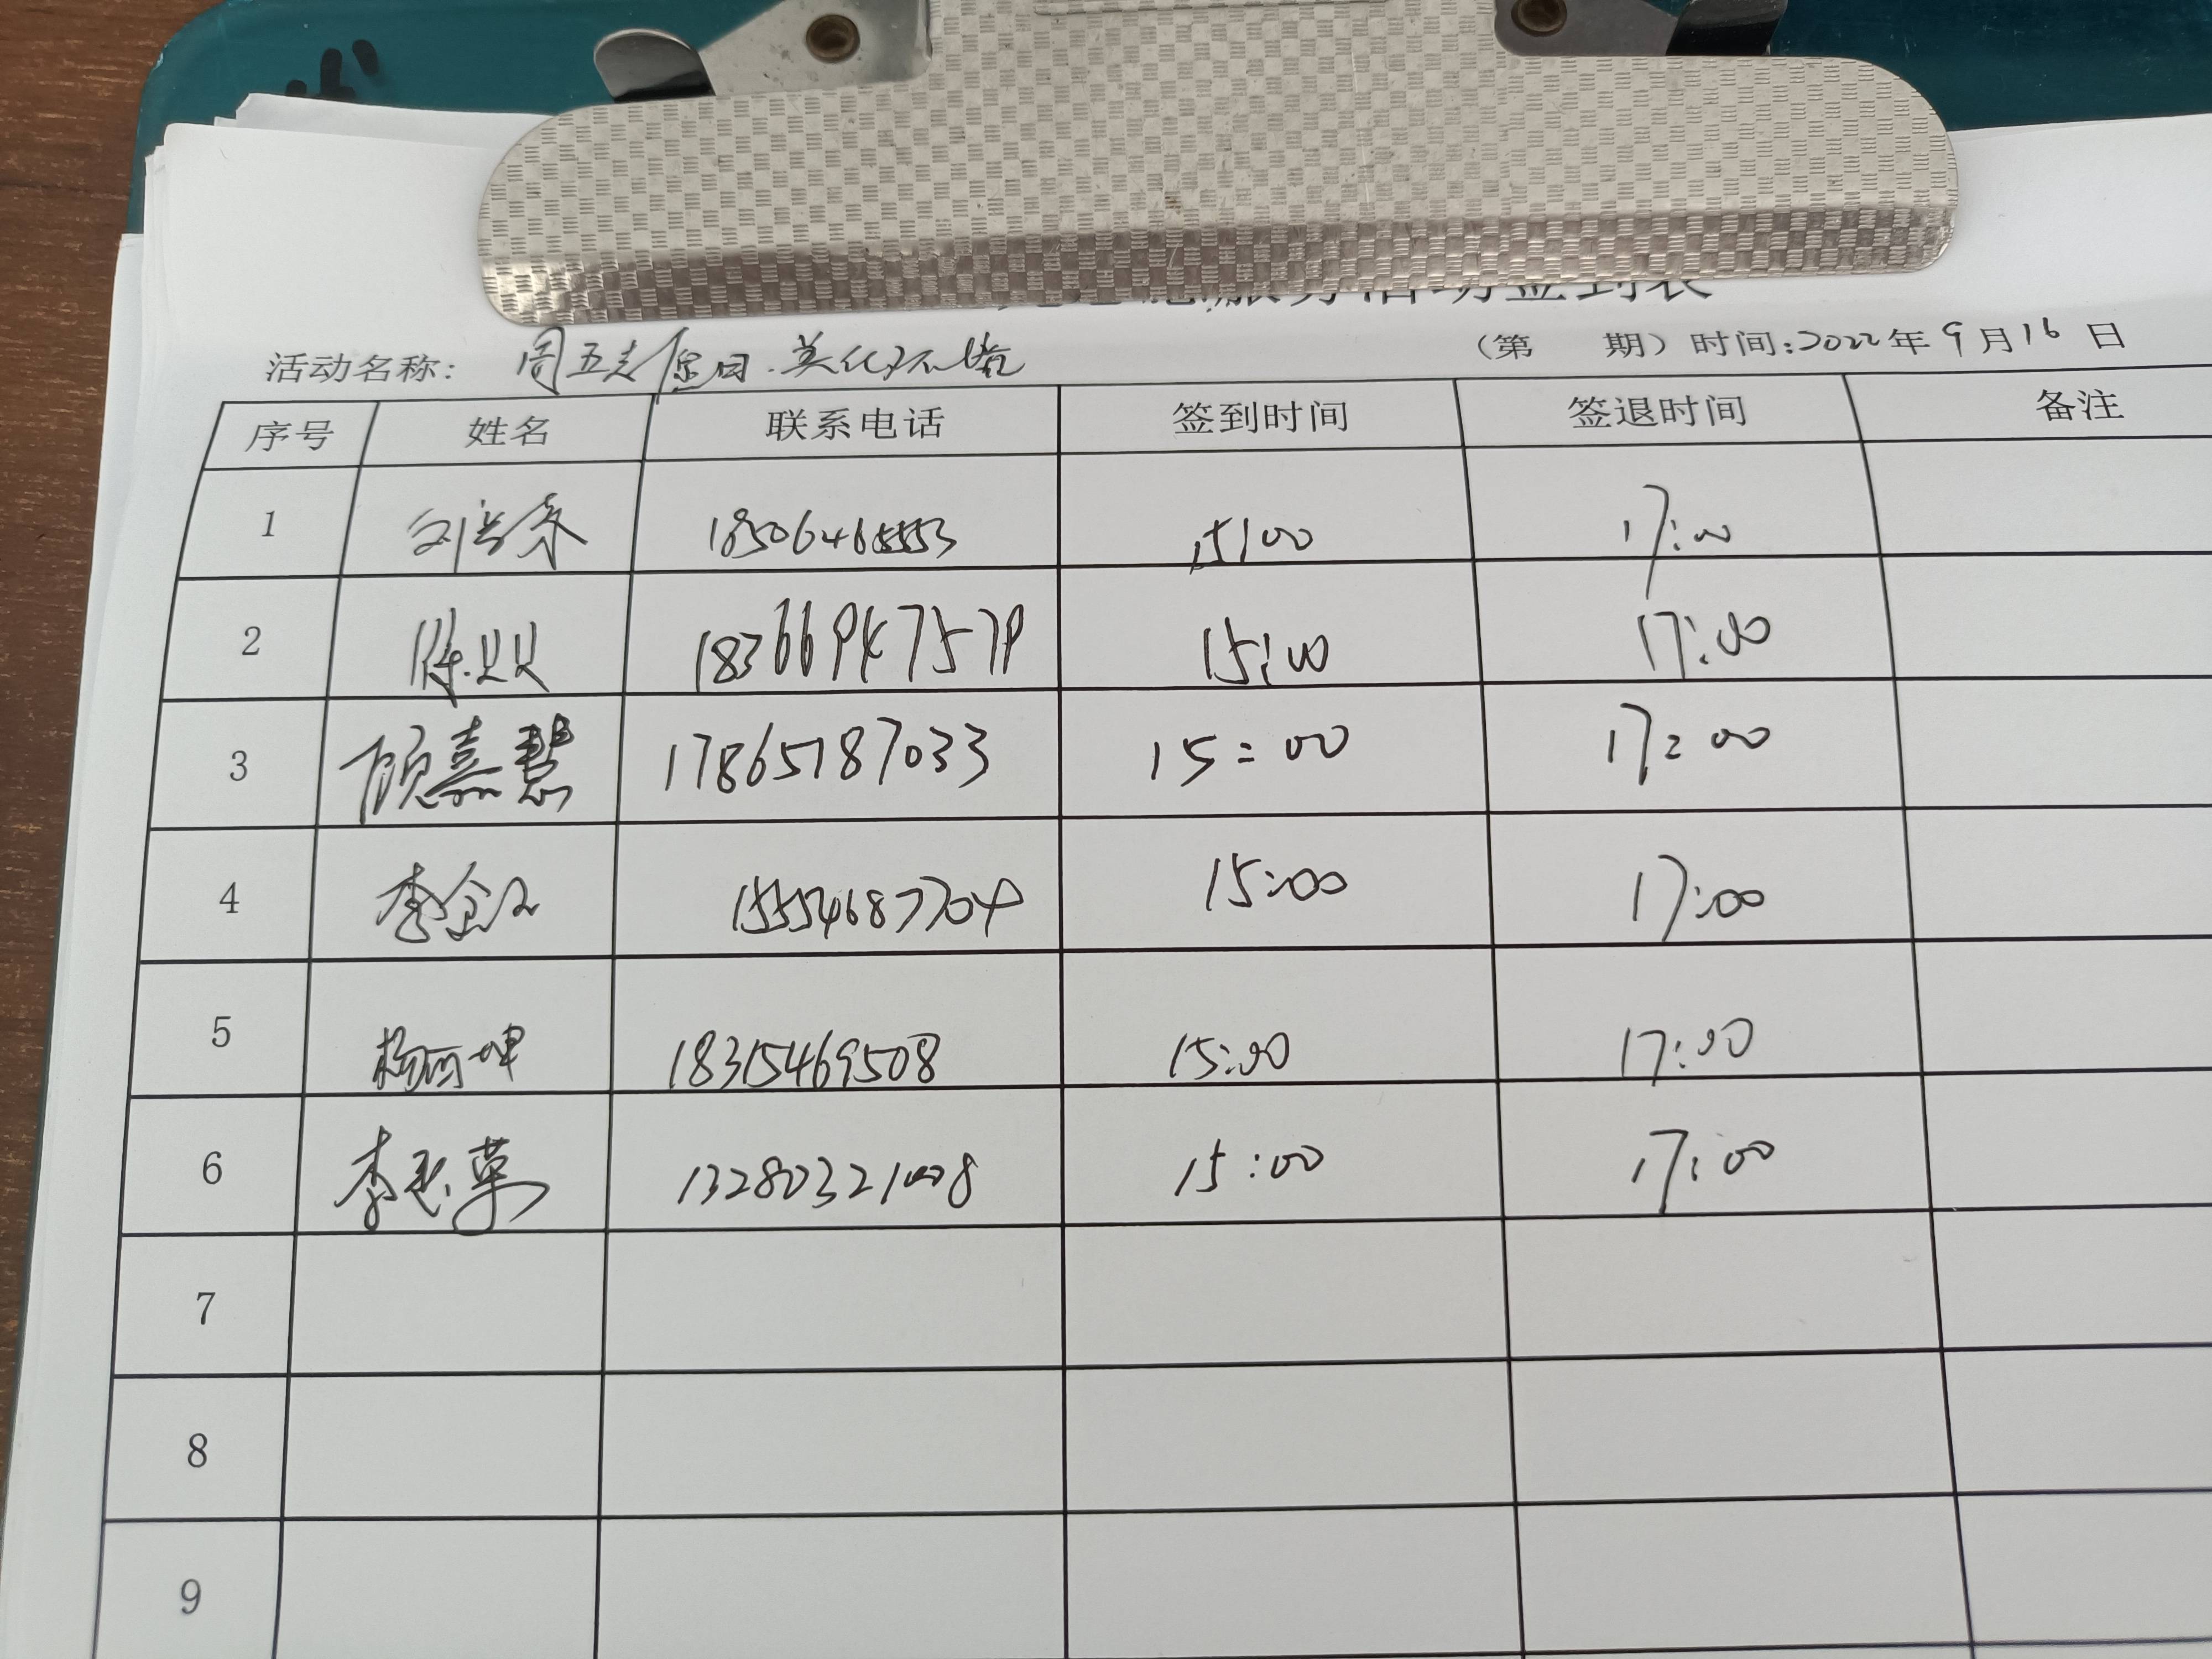 服务活动签到表
活动名称: 周五志愿日.美化环境 (第 期) 时间:2022年9月16日
序号 姓名 联系电话 签到时间 签退时间 备注
1 15:00 17:00
2 18366947579 15:00 17:00
3 顾嘉慧 17865187033 15:00 17:00
4 15554687704 15:00 17:00
5 18315469508 15:00 17:00
6 13280321008 15:00 17:00
7
8
9